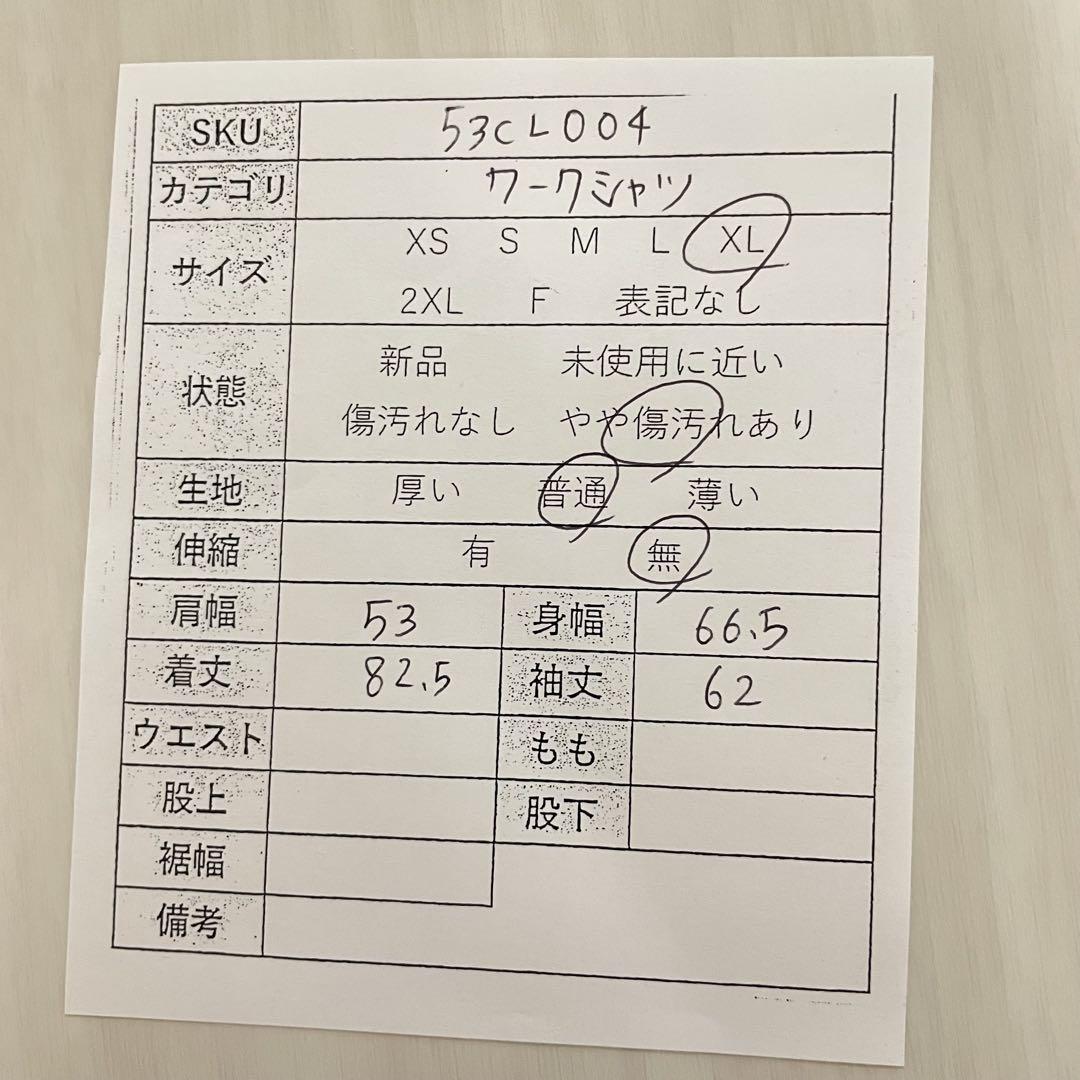 SKU 53CL004
カテゴリ ワークシャツ
サイズ XS S M L XL
2XL F 表記なし
状態 新品 未使用に近い
傷汚れなし やや傷汚れあり
生地 厚い 普通 薄い
伸縮 有 無
肩幅 53 身幅 66.5
着丈 82.5 袖丈 62
ウエスト もも
股上 股下
裾幅
備考